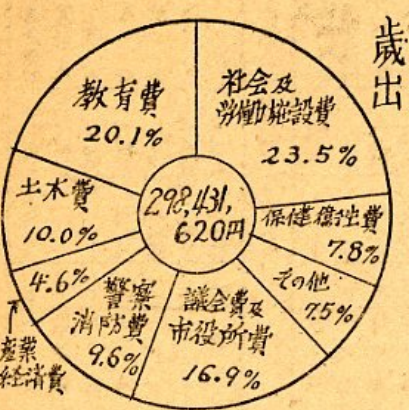 歳出
社会及
労働施設費
23.5%
保健衛生費
7.8%
その他
7.5%
議会費及
市役所費
16.9%
警察
消防費
9.6%
4.6%
産業
経済費
土木費
10.0%
教育費
20.1%
298,431,
620円